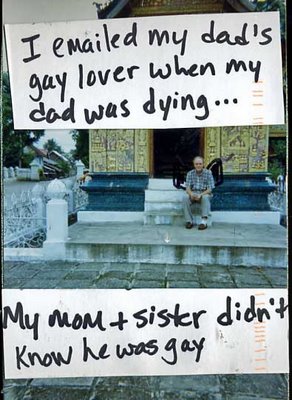 I emailed my dad's
gay lover when my
dad was dying...
My mom + sister didn't
know he was gay